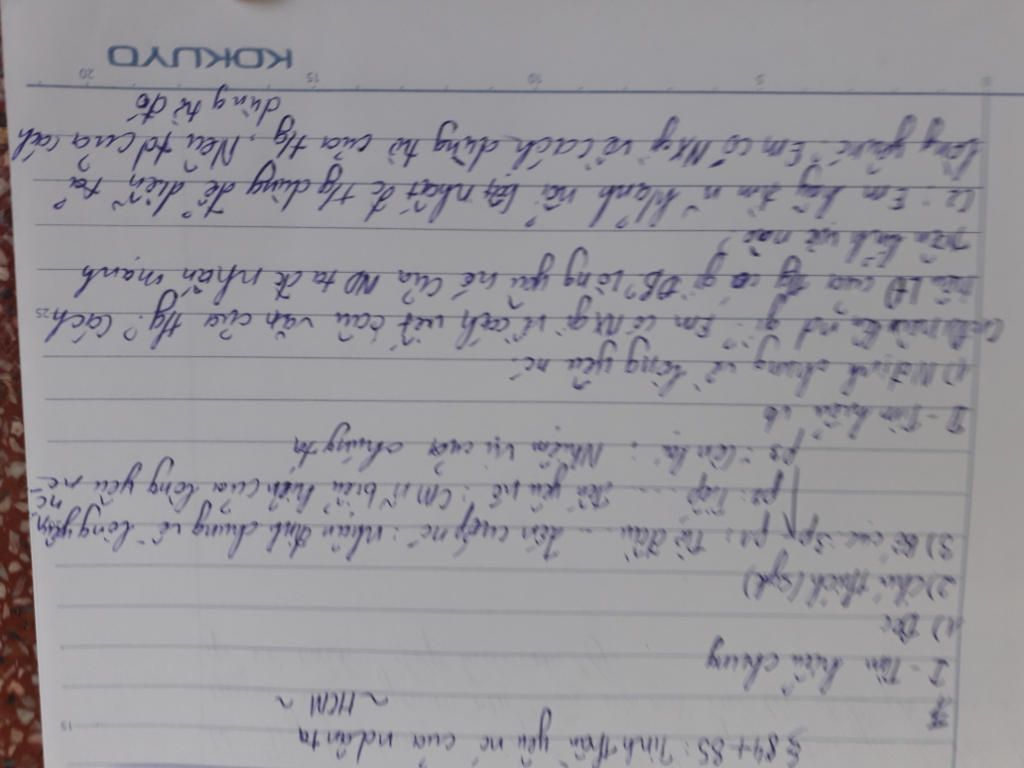 § 84+85: Tinh thần yêu nc của ndân ta
~ HCM ~
I - Tìm hiểu chung
1) Đọc
2) Chú thích (sgk)
3) Bố cục: 3p p1: Từ đầu ... đến cướp nc: nhận định chung về lòng yêu nc
p2: Tiếp ... yêu nc: CM n~ biểu hiện của lòng yêu nc
p3: Còn lại: Nhiệm vụ của chúng ta
II - Tìm hiểu vb
1) Nđịnh chung về lòng yêu nc.
nd gì: Em có Nxg gì về cách viết câu văn của tg? Cách
nêu LĐ của tg có gì ĐB? Lòng yêu nc của ND ta đc nhấn mạnh
trên lĩnh vực nào?
Em hãy tìm n~ h/ảnh nổi bật nhất đc tg dùng để diễn tả
lòng yêu nc. Em có Nxg gì về cách dùng từ của tg. Nêu td của cách
dùng từ đó
15
25
0 5 10 15 20
KOKUYO